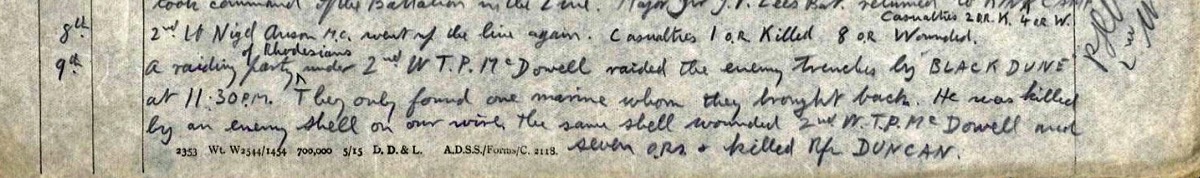 took command of the Battalion in the Line. Major Sir J. V. Lees Bart. returned to KINK CAMP
Casualties 2 OR K. 4 OR W.
8th 2nd Lt Nigel Anson M.C. went up the line again. Casualties 1 OR Killed 8 OR Wounded.
of Rhodesians
9th A raiding party under 2nd Lt T.P. McDowell raided the enemy trenches by BLACK DUNE
at 11.30 P.M. They only found one marine whom they brought back. He was killed
by an enemy shell on our wire. The same shell wounded 2nd Lt. T.P. McDowell and
seven O.R.s & killed Rfn DUNCAN.
2353 Wt. W2544/1454 700,000 5/15 D. D. & L. A.D.S.S./Forms/C. 2118.